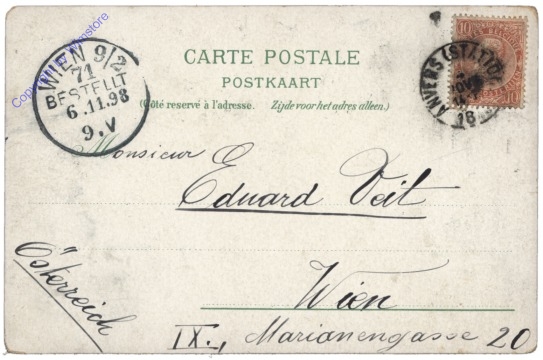 WIEN 9/2
71
BESTELLT
6.11.98
9.V
CARTE POSTALE
POSTKAART
(Côté reservé à l'adresse. Zijde voor het adres alleen.)
10 10
ANVERS (STATION)
Monsieur
Eduard Veit
Wien
IX., Marianengasse 20
Österreich